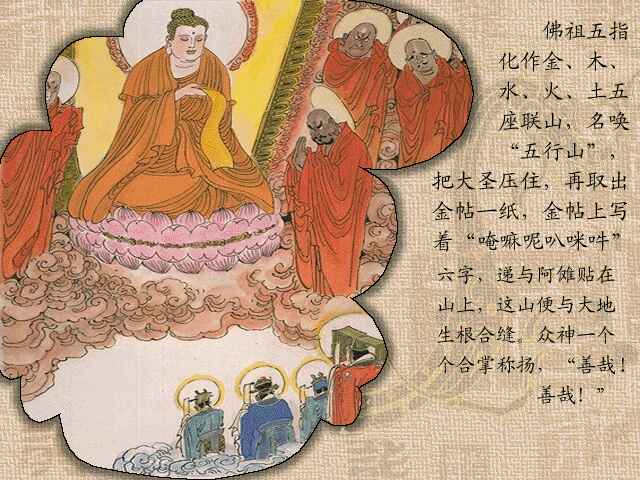 佛祖五指
化作金、木、
水、火、土五
座联山，名唤
“五行山”，
把大圣压住，再取出
金帖一纸，金帖上写
着“唵嘛呢叭咪吽”
六字，递与阿傩贴在
山上，这山便与大地
生根合缝。众神一个
个合掌称扬，“善哉！
善哉！”